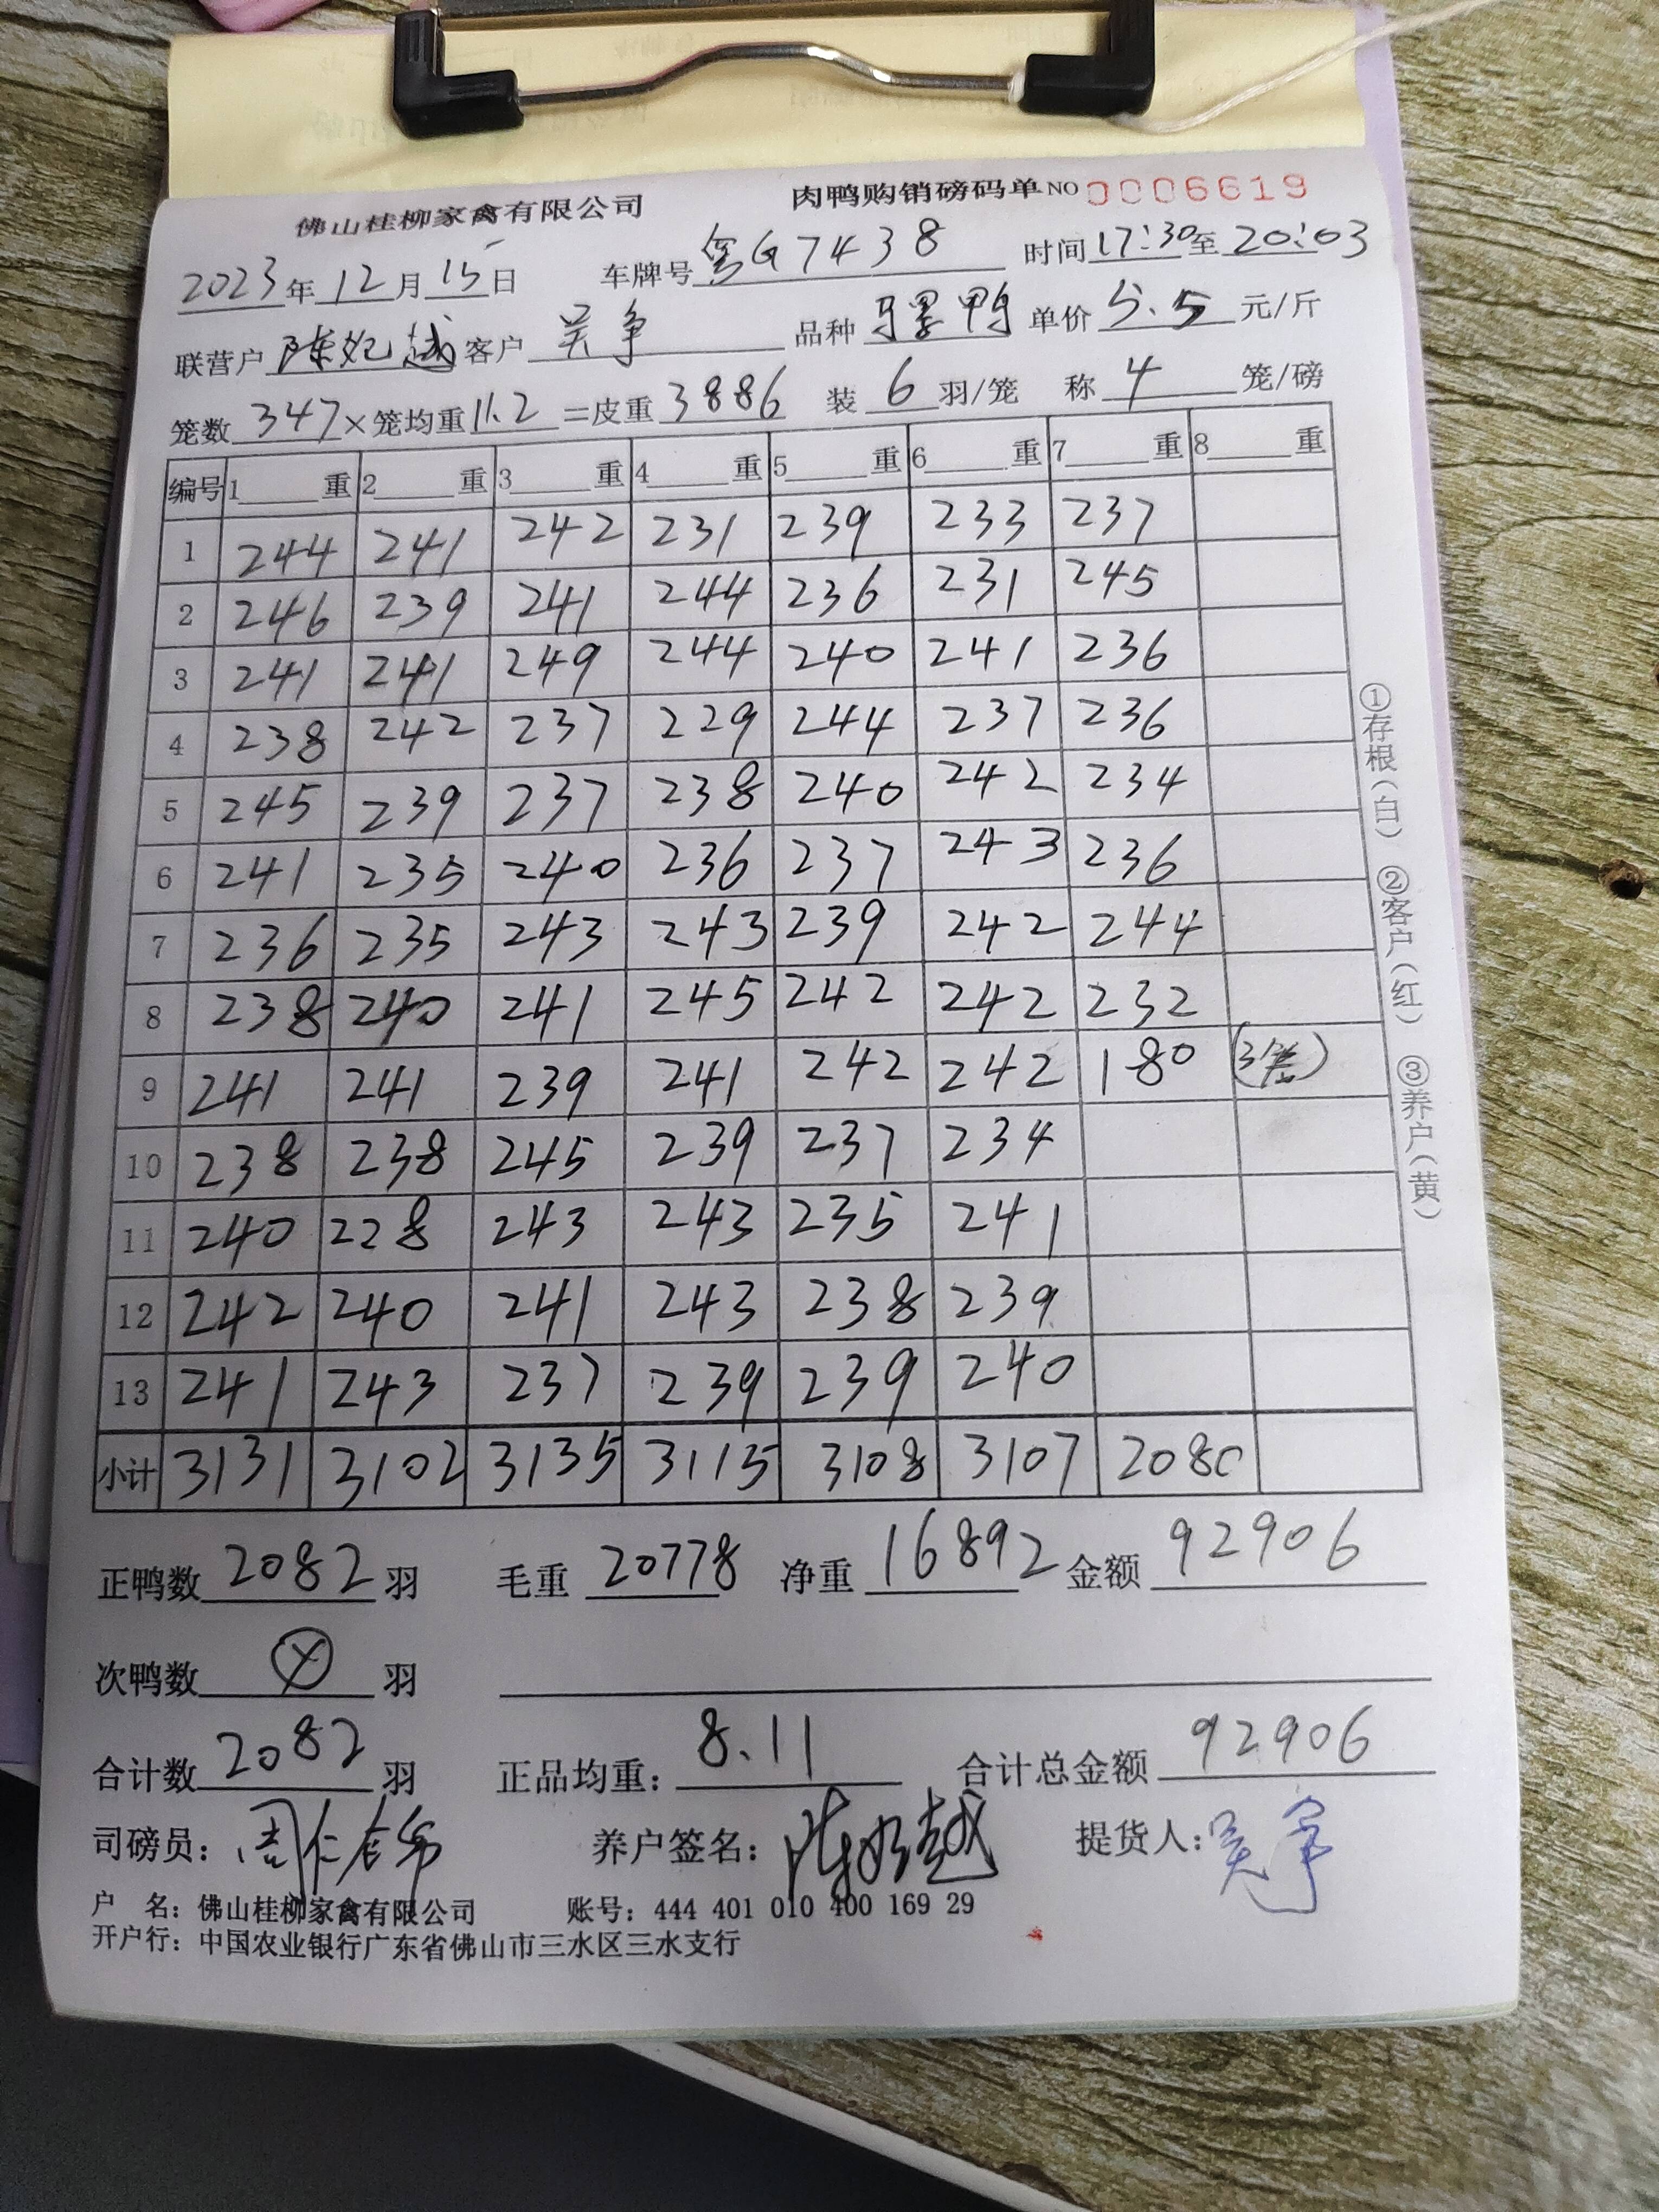 佛山桂柳家禽有限公司 肉鸭购销磅码单 NO 0006619
2023年12月15日 车牌号 粤G7438 时间 17:30至20:03
联营户 陈妃越 客户 吴争 品种 单价 5.5 元/斤
笼数 347×笼均重 11.2 =皮重 3886 装 6 羽/笼 称 4 笼/磅
编号 1 重 2 重 3 重 4 重 5 重 6 重 7 重 8 重
1 244 241 242 231 239 233 237
2 246 239 241 244 236 231 245
3 241 241 249 244 240 241 236
4 238 242 237 229 244 237 236
5 245 239 237 238 240 242 234
6 241 235 240 236 237 243 236
7 236 235 243 243 239 242 244
8 238 240 241 245 242 242 232
9 241 241 239 241 242 242 180 (3笼)
10 238 238 245 239 237 234
11 240 228 243 243 235 241
12 242 240 241 243 238 239
13 241 243 237 239 239 240
小计 3131 3102 3135 3115 3108 3107 2080
正鸭数 2082 羽 毛重 20778 净重 16892 金额 92906
次鸭数 羽
合计数 2082 羽 正品均重: 8.11 合计总金额 92906
司磅员: 养户签名: 提货人:
户 名: 佛山桂柳家禽有限公司 账号: 444 401 010 400 169 29
开户行: 中国农业银行广东省佛山市三水区三水支行
①存根(白) ②客户(红) ③养户(黄)